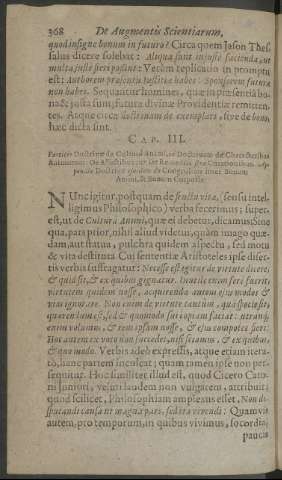 368 De Augmentis Scientiarum,
quod insigne bonum in futuro? Circa quem Jason Thes-
salus dicere solebat: Aliqua sunt injuste facienda, ut
multa juste fieri possint: Verùm replicatio in promptu
est: Authorem præsentis justitiæ habes; Sponsorem futuræ
non habes. Sequantur homines, quæ in præsentiâ bo-
na & justa sunt, futura divinæ Providentiæ remitten-
tes. Atque circa doctrinam de exemplari, sive de bono,
hæc dicta sint.
CAP. III.
Partitio Doctrinæ de Culturâ Animi, in Doctrinam de Characteribus
Animorum: De Affectibus; et de Remediis sive Curationibus.
pendix Doctrinæ ejusdem de Congruitate inter Bonum
Animi, & Bonum Corporis.
NUnc igitur, postquam de fructu vitæ, (sensu intel-
ligimus Philosophico) verba fecerimus; super-
est, ut de Culturâ Animi, quæ ei debetur, dicamus; Sine
qua, pars prior, nihil aliud videtur, quàm imago quæ-
dam, aut statua, pulchra quidem aspectu, sed motu
& vita destituta. Cui sententiæ Aristoteles ipse diser-
tis verbis suffragatur: Necesse est igitur de virtute dicere,
& quid sit, & ex quibus gignatur. Inutile enim ferè fuerit,
virtutem quidem nosse, acquirendæ autem ejus modos &
vias ignorare. Non enim de virtute tantùm, quâ specie sit,
quærendum est, sed & quomodo sui copiam faciat: utrumque
enim volumus, & rem ipsam nosse, & ejus compotes fieri:
Hoc autem ex voto non succedet, nisi sciamus, & ex quibus,
& quo modo. Verbis adeò expressis, atque etiam itera-
tò, hanc partem inculcat; quam tamen ipse non per-
sequitur. Hoc similiter illud est, quod Cicero Cato-
ni Juniori, veluti laudem non vulgarem, attribuit;
quod scilicet, Philosophiam amplexus esset, Non di-
sputandi causâ ut magna pars, sed ita vivendi: Quamvis
autem, pro temporum, in quibus vivimus, socordiâ,
paucis